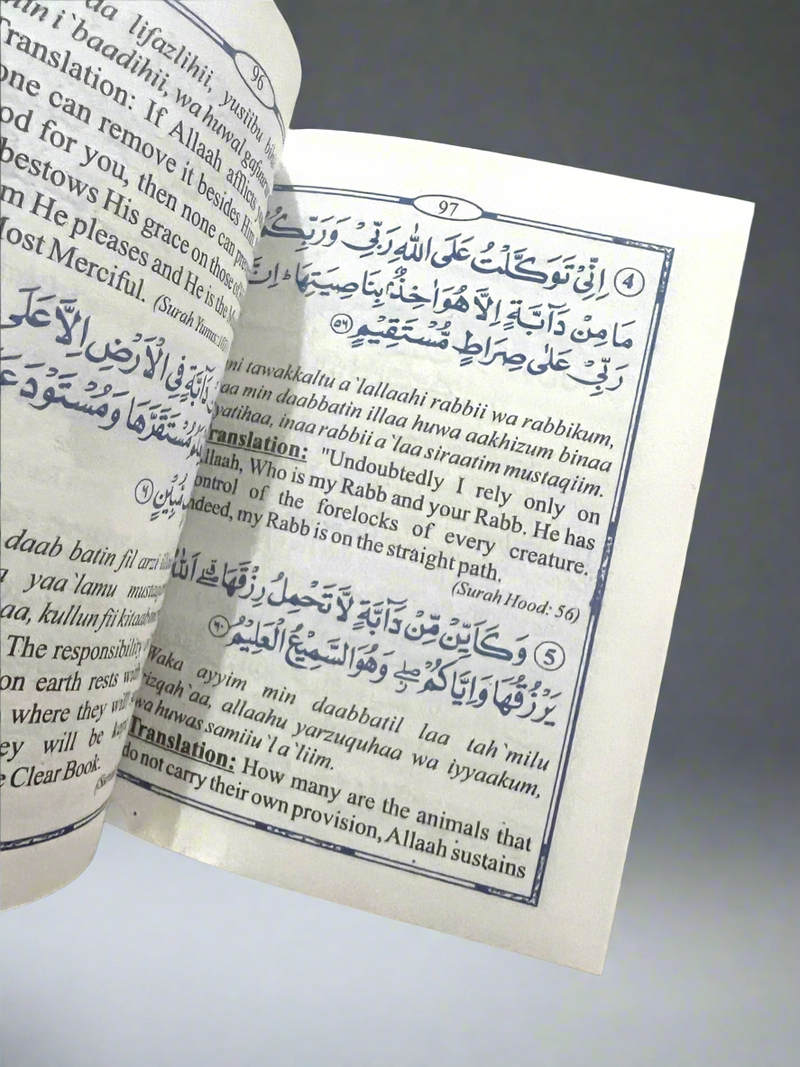 96
lifazlihii, yusiibu
i`baadihii, wa huwal gafuur
Translation: If Allaah afflicts
one can remove it besides Him
for you, then none can
bestows His grace on those of
He pleases and He is the
Most Merciful. (Surah Yunus:
دَآبَّةٍ فِي الْاَرْضِ اِلَّا عَلَى
مُسْتَقَرَّهَا وَمُسْتَوْدَعَ
مُّبِيْنٍ ٦
daab batin fil arzi illa
yaa`lamu
kullun fii kitaabim
The responsibility
on earth rests with
where they will
will be kept
Clear Book.
97
4 اِنِّيْ تَوَكَّلْتُ عَلَى اللّٰهِ رَبِّيْ وَرَبِّكُمْ
مَا مِنْ دَآبَّةٍ اِلَّا هُوَ اٰخِذٌۢ بِنَاصِيَتِهَا ؕ اِنَّ
رَبِّيْ عَلٰى صِرَاطٍ مُّسْتَقِيْمٍ ٥٦
tawakkaltu a`lallaahi rabbii wa rabbikum,
min daabbatin illaa huwa aakhizum binaa
inaa rabbii a`laa siraatim mustaqiim.
Translation: "Undoubtedly I rely only on
Allaah, Who is my Rabb and your Rabb. He has
control of the forelocks of every creature.
Indeed, my Rabb is on the straight path.
(Surah Hood: 56)
5 وَكَاَيِّنْ مِّنْ دَآبَّةٍ لَّا تَحْمِلُ رِزْقَهَا ۖۗ اَللّٰهُ
يَرْزُقُهَا وَاِيَّاكُمْ ۖؗ وَهُوَ السَّمِيْعُ الْعَلِيْمُ ٦٠
Waka ayyim min daabbatil laa tah`milu
rizqah`aa, allaahu yarzuquhaa wa iyyaakum,
wa huwas samiiu`l a`liim.
Translation: How many are the animals that
do not carry their own provision, Allaah sustains